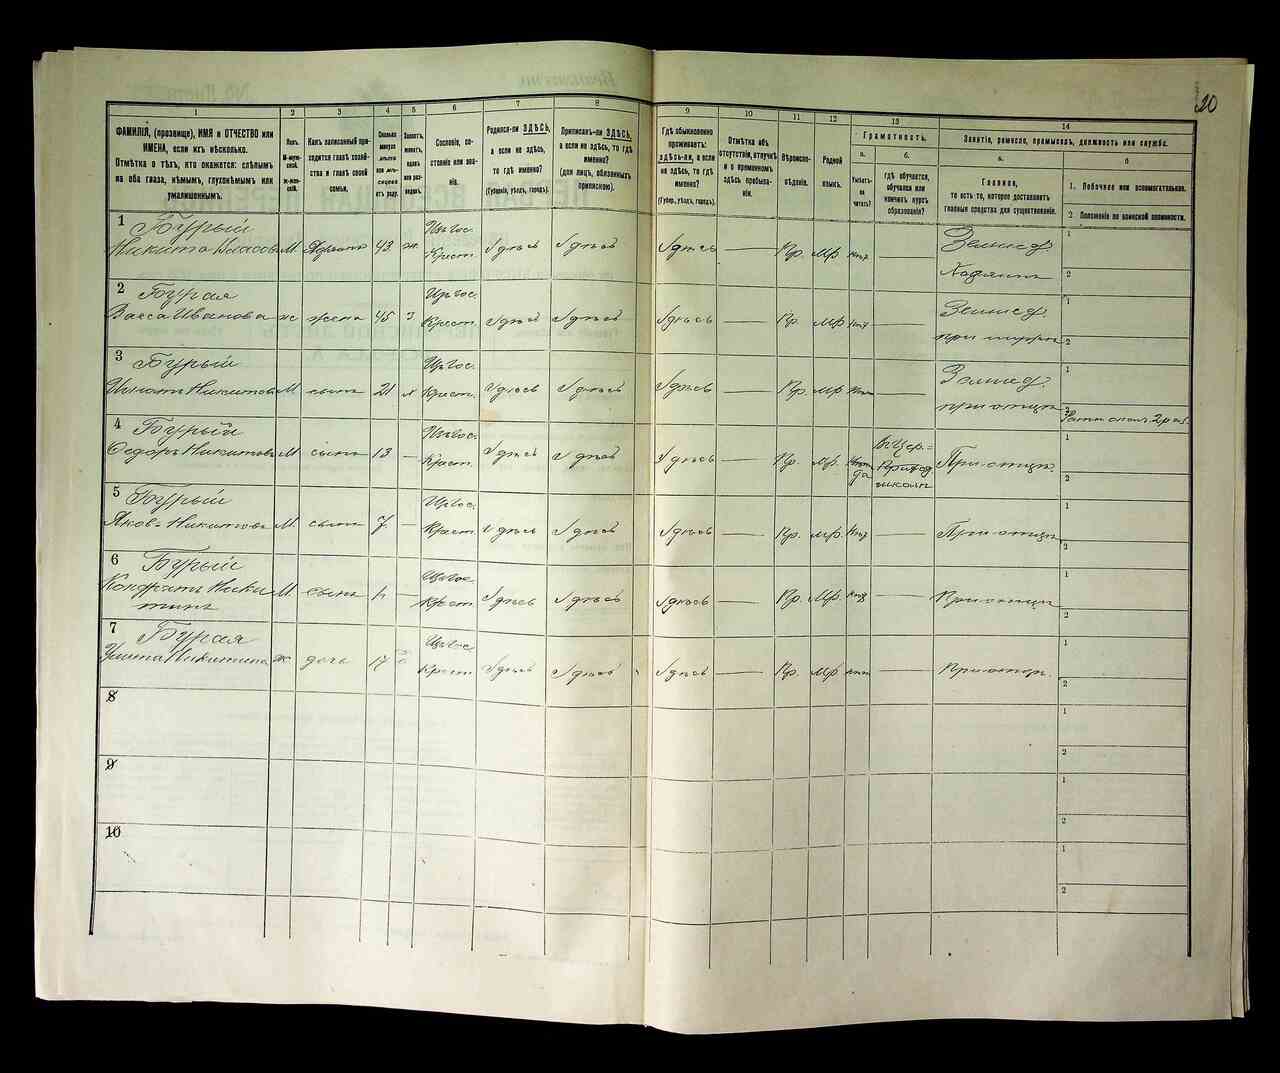 20
1 2 3 4 5 6 7 8 9 10 11 12 13 14
ФАМИЛІЯ, (прозвище), ИМЯ и ОТЧЕСТВО или
ИМЕНА, если ихъ нѣсколько.
Отмѣтка о тѣхъ, кто окажется: слѣпымъ
на оба глаза, нѣмымъ, глухонѣмымъ или
умалишеннымъ.
Полъ.
М-мужской.
Ж-женскій.
Какъ записанный приходится главѣ хозяйства и главѣ своей
семьи.
Сколько
минуло
лѣтъ
или мѣсяцевъ
отъ роду.
Холостъ,
женатъ,
вдовъ
или разведенъ.
Сословіе, состояніе или званіе.
Родился-ли ЗДѢСЬ,
а если не здѣсь,
то гдѣ именно?
(Губернія, уѣздъ, городъ).
Приписанъ-ли ЗДѢСЬ,
а если не здѣсь, то гдѣ
именно?
(для лицъ, обязанныхъ
припискою).
Гдѣ обыкновенно
проживаетъ:
здѣсь-ли, а если
не здѣсь, то гдѣ
именно?
(Губер., уѣздъ, городъ).
Отмѣтка объ
отсутствіи, отлучкѣ
и о временномъ
здѣсь пребываніи.
Вѣроисповѣданіе.
Родной
языкъ.
Грамотность.
а.
Умѣетъ-ли
читать?
б.
гдѣ обучается,
обучался или
кончилъ курсъ
образованія?
Занятіе, ремесло, промыселъ, должность или служба.
а.
Главное,
то есть то, которое доставляетъ
главныя средства для существованія.
б
1. Побочное или вспомогательное.
2 Положеніе по воинской повинности.
1 Бурый
Никита Власовъ М 43 ж Крест. здѣсь здѣсь здѣсь — Пр. Мр — Землед. 1
Хозяинъ 2
2 Бурая
Васса Иванова ж жена 45 з Крест. здѣсь здѣсь здѣсь — Пр. Мр — Землед. 1
при мужѣ 2
3 Бурый
Никитовъ М сынъ 21 Крест. здѣсь здѣсь здѣсь — Пр. Мр — Землед. 1
при отцѣ 2
4 Бурый
Федоръ Никитовъ М сынъ 13 — Крест. здѣсь здѣсь здѣсь — Пр. Мр. да При отцѣ 1
2
5 Бурый
Яковъ Никитовъ М сынъ 7 — Крест. здѣсь здѣсь здѣсь — Пр. Мр — При отцѣ 1
2
6 Бурый
Кондратъ Никитинъ М сынъ — Крест. здѣсь здѣсь здѣсь — Пр. Мр. — При отцѣ 1
2
7 Бурая
Никитина ж. дочь 17 Крест. здѣсь здѣсь здѣсь — Пр. Мр — При отцѣ 1
2
8 1
2
9 1
2
10 1
2